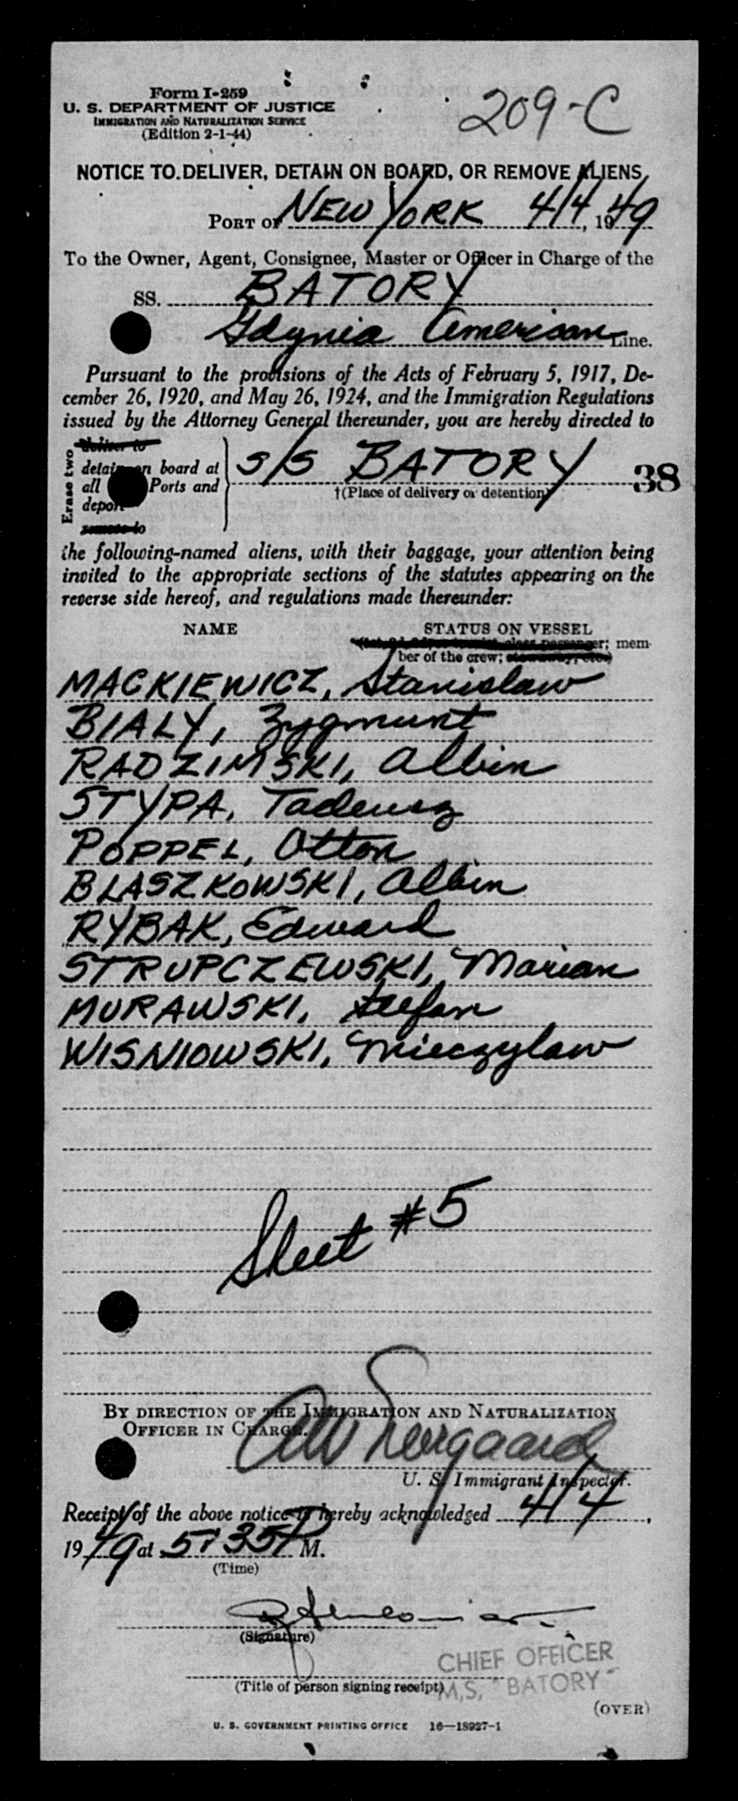 Form I-259
U. S. DEPARTMENT OF JUSTICE
IMMIGRATION AND NATURALIZATION SERVICE
(Edition 2-1-44)
209-C
NOTICE TO DELIVER, DETAIN ON BOARD, OR REMOVE ALIENS
PORT OF NEW YORK 4/4, 1949
To the Owner, Agent, Consignee, Master or Officer in Charge of the
SS. BATORY
Gdynia American Line.
Pursuant to the provisions of the Acts of February 5, 1917, De-
cember 26, 1920, and May 26, 1924, and the Immigration Regulations
issued by the Attorney General thereunder, you are hereby directed to
Erase two
deliver to
detain on board at
all Ports and
deport
remove to
S/S BATORY 38
†(Place of delivery or detention)
the following-named aliens, with their baggage, your attention being
invited to the appropriate sections of the statutes appearing on the
reverse side hereof, and regulations made thereunder:
NAME STATUS ON VESSEL
class passenger; mem-
ber of the crew;
MACKIEWICZ, Stanislaw
BIALY, Zygmunt
RADZIMSKI, Albin
STYPA, Tadeusz
POPPEL, Otton
BLASZKOWSKI, Albin
RYBAK, Edward
STRUPCZEWSKI, Marian
MURAWSKI, Stefan
WISNIOWSKI, Mieczylaw
Sheet #5
BY DIRECTION OF THE IMMIGRATION AND NATURALIZATION
OFFICER IN CHARGE.
U. S. Immigrant Inspector.
Receipt of the above notice is hereby acknowledged 4/4,
1949 at 5:35 P M.
(Time)
(Signature)
CHIEF OFFICER
M,S, "BATORY"
(Title of person signing receipt)
(OVER)
U. S. GOVERNMENT PRINTING OFFICE 16—18927-1